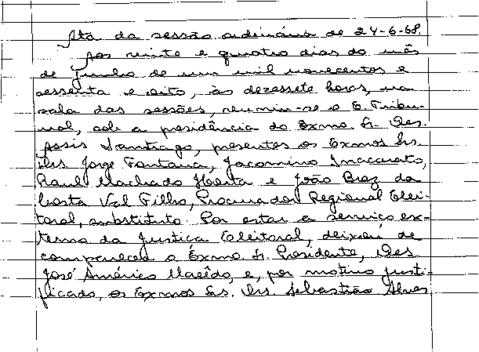 Ata da sessão ordinária de 24-6-68.
Aos vinte e quatro dias do mês
de junho de um mil novecentos e
sessenta e oito, às dezassete horas, na
sala das sessões, reuniu-se o E. Tribu-
nal, sob a presidência do Exmo. Sr. Des.
Assis Santiago, presentes os Exmos Srs.
Drs. Jorge Fontana, Jacomino Inacarato,
Raul Machado Horta e João Braz da
Costa Val Filho, Procurador Regional Elei-
toral, substituto. Por estar a serviço ex-
terno da Justiça Eleitoral, deixou de
comparecer o Exmo. Sr. Presidente, Des.
José Américo Macêdo, e, por motivo justi-
ficado, os Exmos Srs. Drs. Sebastião Alves